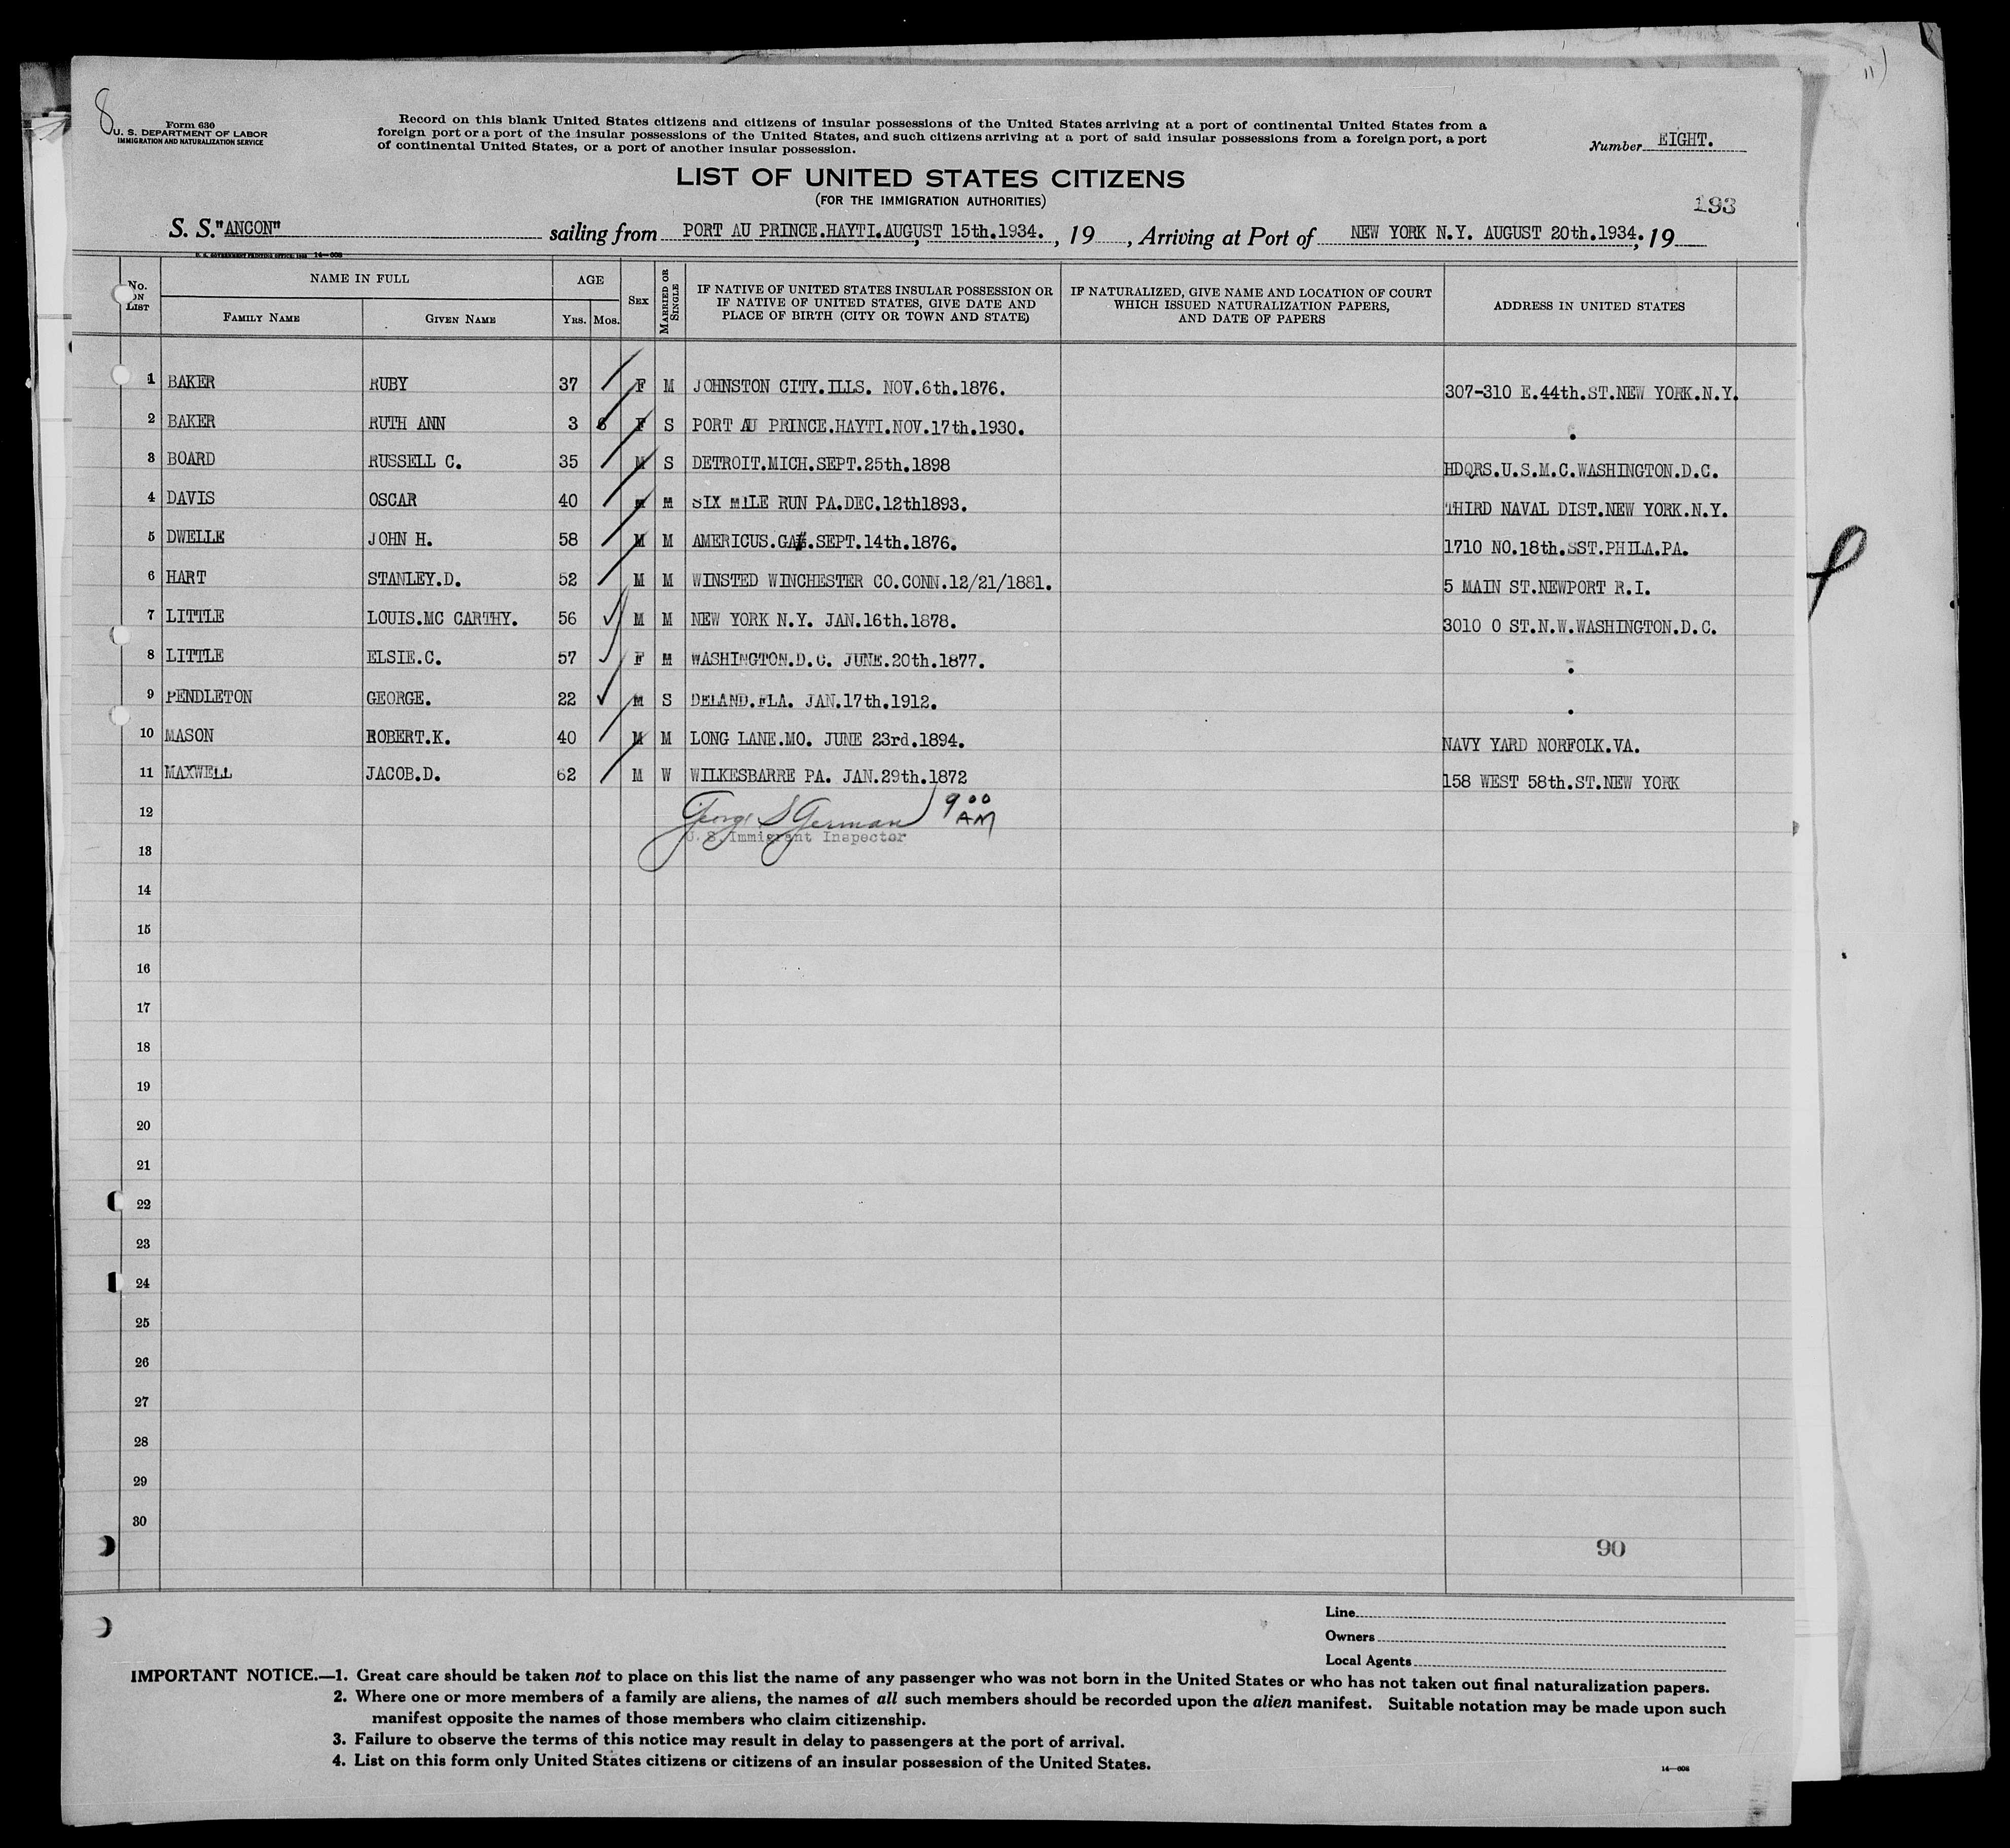 8
11)
Form 630
U. S. DEPARTMENT OF LABOR
IMMIGRATION AND NATURALIZATION SERVICE
Record on this blank United States citizens and citizens of insular possessions of the United States arriving at a port of continental United States from a
foreign port or a port of the insular possessions of the United States, and such citizens arriving at a port of said insular possessions from a foreign port, a port
of continental United States, or a port of another insular possession.
Number EIGHT.
LIST OF UNITED STATES CITIZENS
(FOR THE IMMIGRATION AUTHORITIES)
193
S. S. "ANCON" sailing from PORT AU PRINCE.HAYTI.AUGUST 15th.1934. , 19 , Arriving at Port of NEW YORK N.Y. AUGUST 20th.1934. , 19
14—608
No. ON LIST NAME IN FULL AGE SEX MARRIED OR SINGLE IF NATIVE OF UNITED STATES INSULAR POSSESSION OR IF NATIVE OF UNITED STATES, GIVE DATE AND PLACE OF BIRTH (CITY OR TOWN AND STATE) IF NATURALIZED, GIVE NAME AND LOCATION OF COURT WHICH ISSUED NATURALIZATION PAPERS, AND DATE OF PAPERS ADDRESS IN UNITED STATES
FAMILY NAME GIVEN NAME YRS. MOS.
1 BAKER RUBY 37 F M JOHNSTON CITY.ILLS. NOV.6th.1876. 307-310 E.44th.ST.NEW YORK.N.Y.
2 BAKER RUTH ANN 3 6 F S PORT AU PRINCE.HAYTI.NOV.17th.1930. "
3 BOARD RUSSELL C. 35 M S DETROIT.MICH.SEPT.25th.1898 HDQRS.U.S.M.C.WASHINGTON.D.C.
4 DAVIS OSCAR 40 M M SIX MILE RUN PA.DEC.12th1893. THIRD NAVAL DIST.NEW YORK.N.Y.
5 DWELLE JOHN H. 58 M M AMERICUS.GA.SEPT.14th.1876. 1710 NO.18th.SST.PHILA.PA.
6 HART STANLEY.D. 52 M M WINSTED WINCHESTER CO.CONN.12/21/1881. 5 MAIN ST.NEWPORT R.I.
7 LITTLE LOUIS.MC CARTHY. 56 M M NEW YORK N.Y. JAN.16th.1878. 3010 O ST.N.W.WASHINGTON.D.C.
8 LITTLE ELSIE.C. 57 F M WASHINGTON.D.C. JUNE.20th.1877. "
9 PENDLETON GEORGE. 22 M S DELAND.FLA. JAN.17th.1912. "
10 MASON ROBERT.K. 40 M M LONG LANE.MO. JUNE 23rd.1894. NAVY YARD NORFOLK.VA.
11 MAXWELL JACOB.D. 62 M W WILKESBARRE PA. JAN.29th.1872 158 WEST 58th.ST.NEW YORK
12 George S German 9 00 AM
U. S. Immigrant Inspector
13
14
15
16
17
18
19
20
21
22
23
24
25
26
27
28
29
30
90
Line
Owners
Local Agents
IMPORTANT NOTICE.—1. Great care should be taken not to place on this list the name of any passenger who was not born in the United States or who has not taken out final naturalization papers.
2. Where one or more members of a family are aliens, the names of all such members should be recorded upon the alien manifest. Suitable notation may be made upon such
manifest opposite the names of those members who claim citizenship.
3. Failure to observe the terms of this notice may result in delay to passengers at the port of arrival.
4. List on this form only United States citizens or citizens of an insular possession of the United States.
14—608